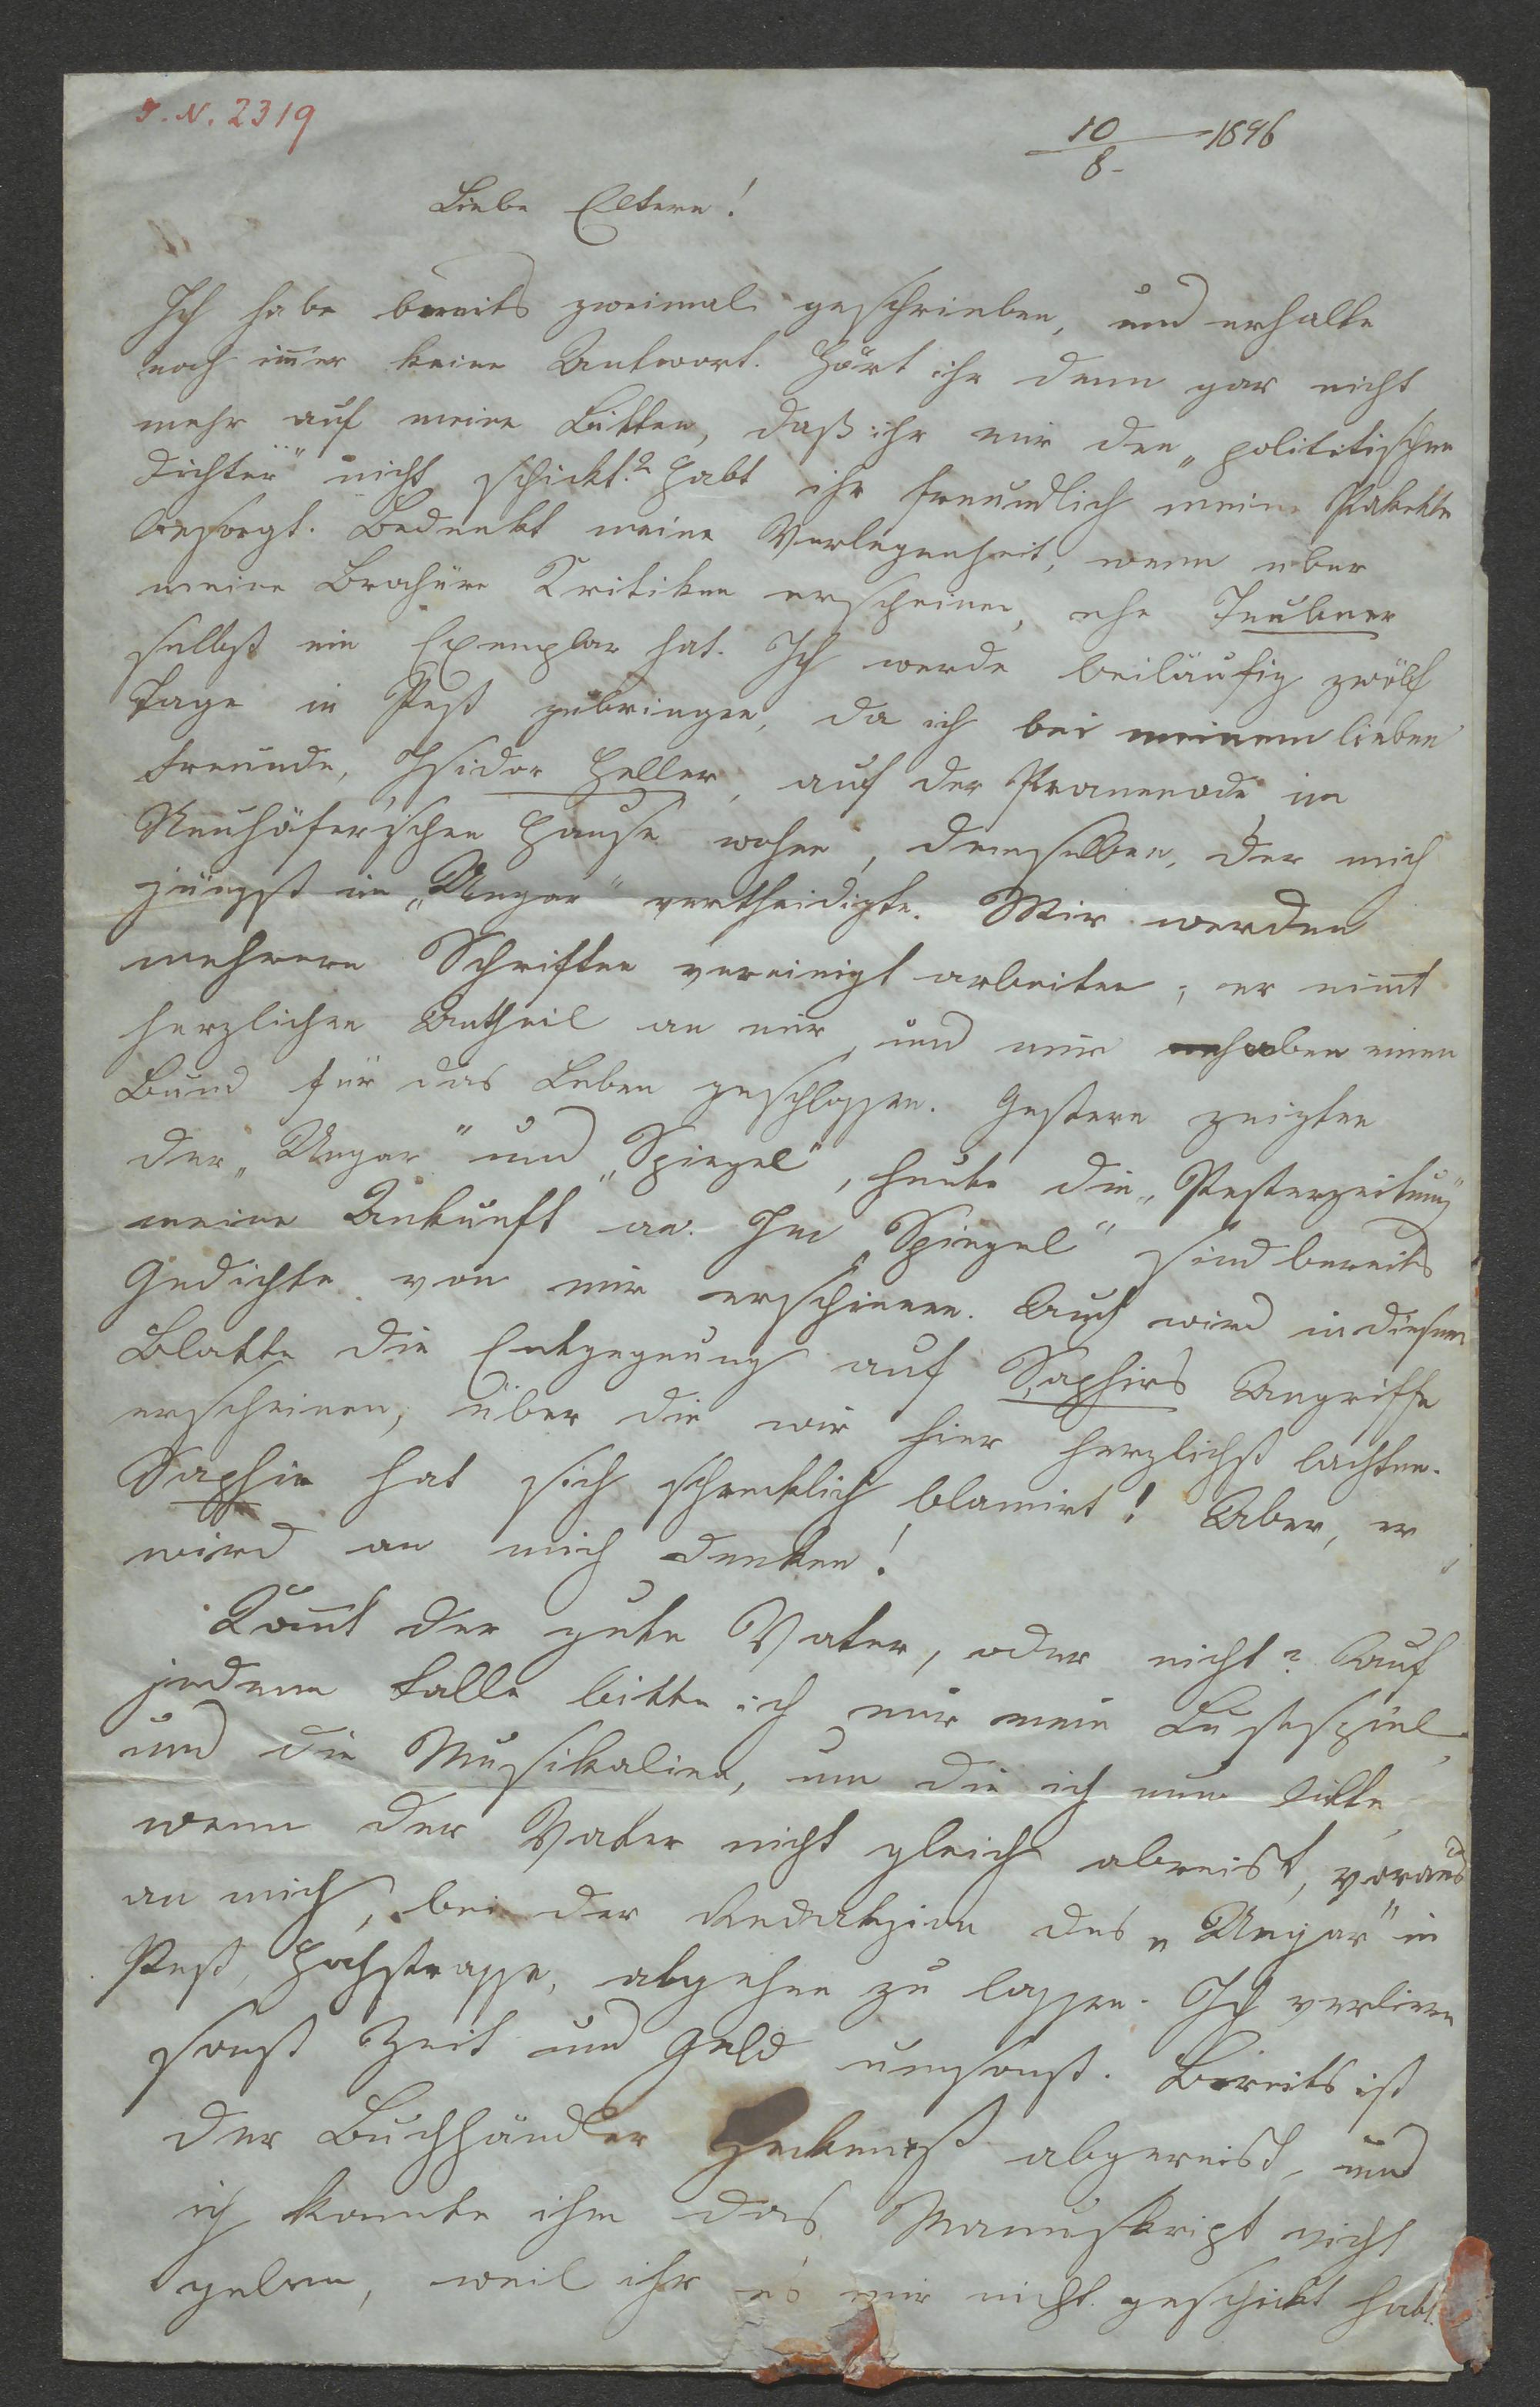 I. N. 2319
10/8 - 1846
Liebe Eltern!
Ich habe bereits zweimal geschrieben, und erhalte
noch im̅er keine Antwort. Hört ihr denn gar nicht
mehr auf meine Bitten, daß ihr mir den „polititischen
Dichter" nicht schickt? Habt ihr freundlich meine Pakette
besorgt. Bedenkt meine Verlegenheit, wenn über
meine Brochüre Kritiken erscheinen, ehe Teubner
selbst ein Exemplar hat. Ich werde beiläufig zwölf
Tage in Pest zubringen, da ich bei meinem lieben
Freunde, Isidor Heller, auf der Promenade im
Neuhöfer'schen Hause wohne, demselben, der mich
jüngst im „Ungar" vertheidigte. Wir werden
mehrere Schriften vereinigt arbeiten; er nim̅t
herzlichen Antheil an mir, und wir haben einen
Bund für das Leben geschlossen. Gestern zeigten
der „Ungar" und „Spiegel", heute die „Pesterzeitung"
meine Ankunft an. Im „Spiegel" sind bereits
Gedichte von mir erschienen. Auch wird in diesem
Blatte die Entgegnung auf Saphirs Angriffe
erscheinen, über die wir hier herzlichst lachten.
Saphir hat sich schrecklich blamirt! Aber, er
wird an mich denken!
Kom̅t der gute Vater, oder nicht? Auf
jedem Falle bitte ich mir mein Lustspiel
und die Musikalien, um die ich nun bitte,
wenn der Vater nicht gleich abreist, voraus
an mich, bei der Redakzion des „Ungar" in
Pest, Hochstrasse, abgehen zu lassen. Ich verliere
sonst Zeit und Geld umsonst. Bereits ist
der Buchhändler Heckenast abgereist, und
ich konnte ihm das Manuskript nicht
geben, weil ihr es mir nicht geschickt habt.